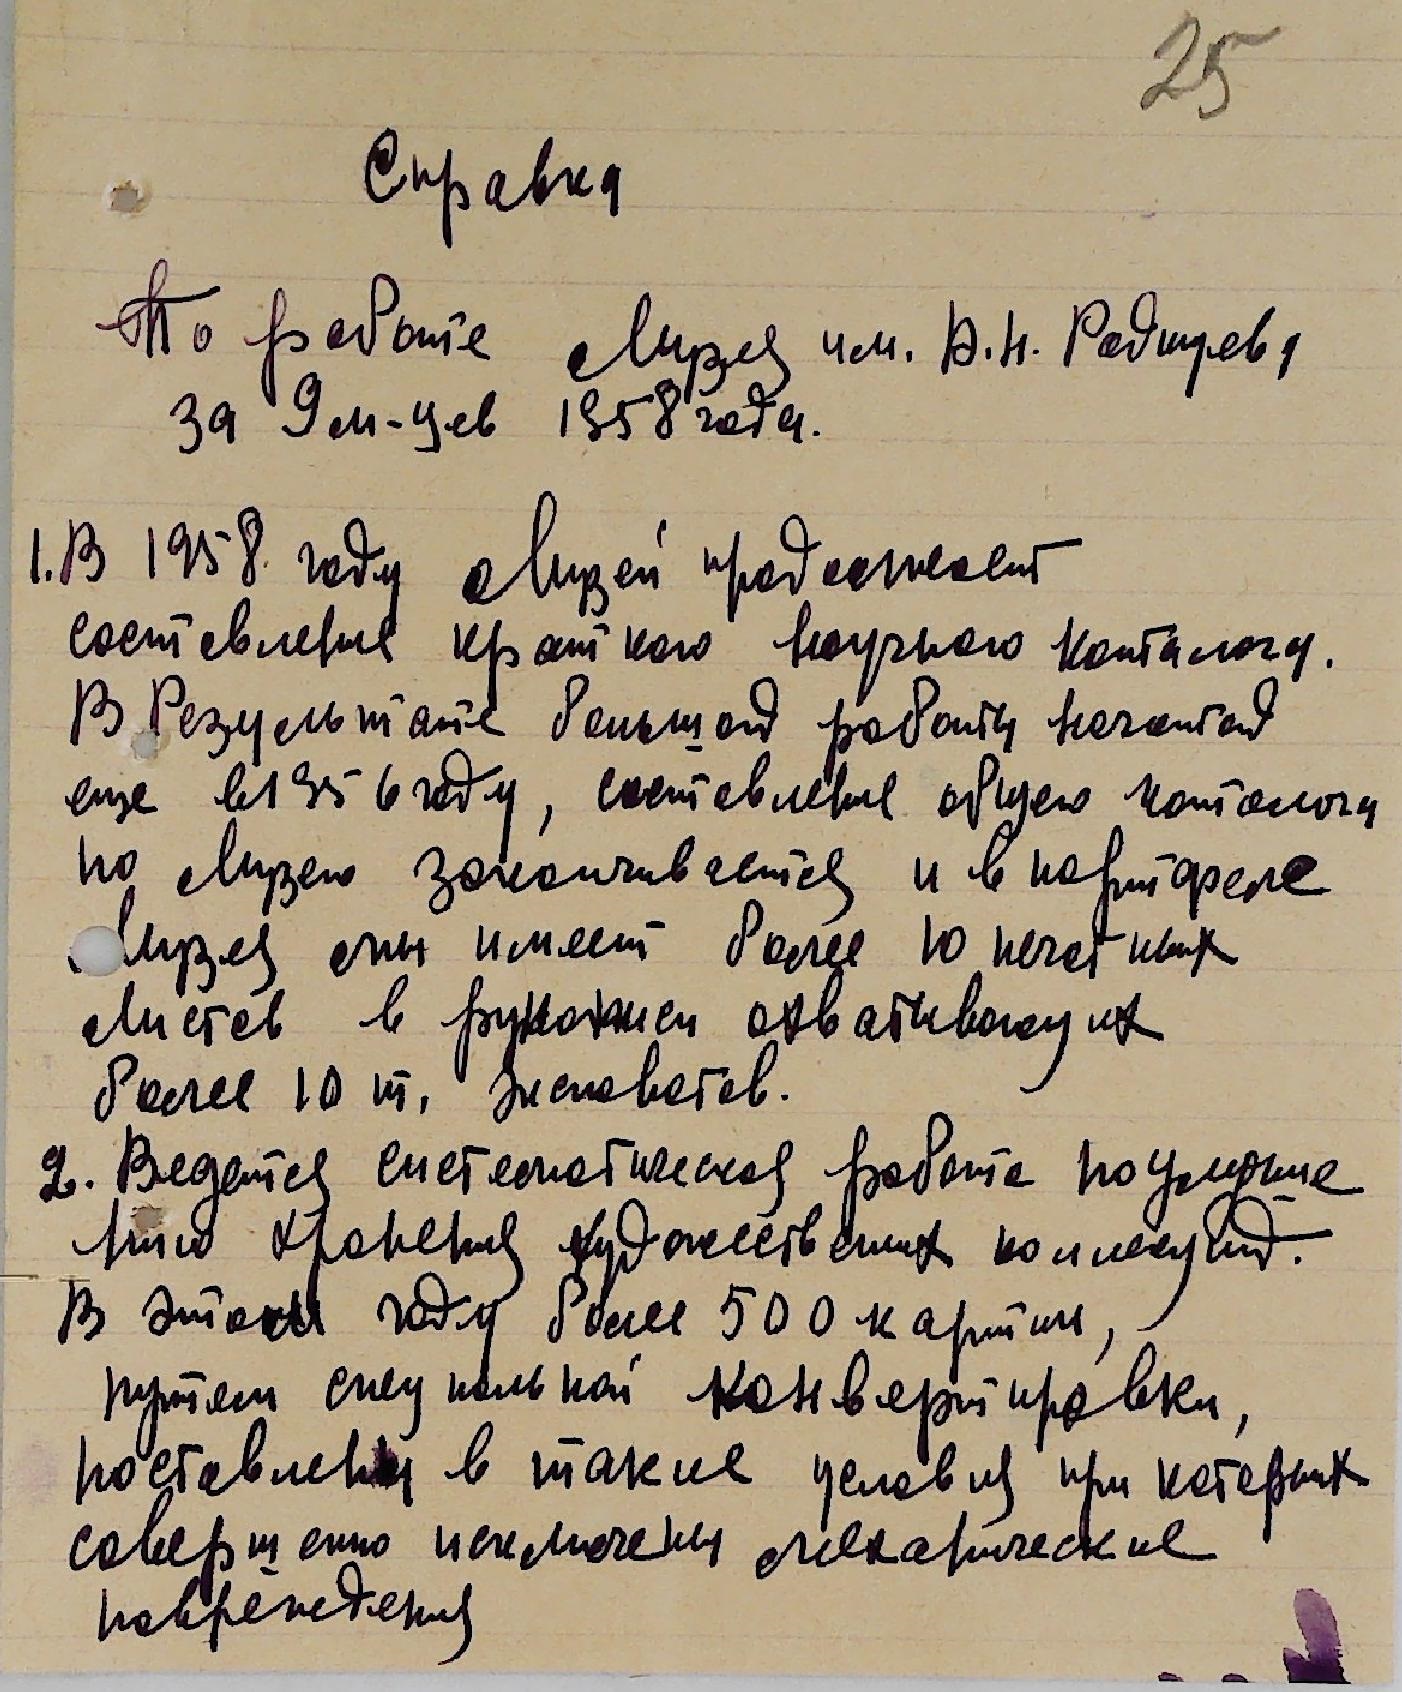 25
Справка
По работе Музея им. А.Н. Радищева
за 9 м-цев 1958 года.
1. В 1958 году Музей продолжает
составление краткого научного каталога.
В Результате большой работы начатой
еще в 1956 году, составление общего каталога
по Музею заканчивается и в портфеле
Музея мы имеем более 10 печатных
листов в рукописи охватывающих
более 10 т. экспонатов.
2. Ведется систематическая работа по улучше
нию хранения художественных коллекций.
В этом году более 500 картин,
путем специальной конвертировки,
поставлены в такие условия при которых
совершенно исключены механические
повреждения